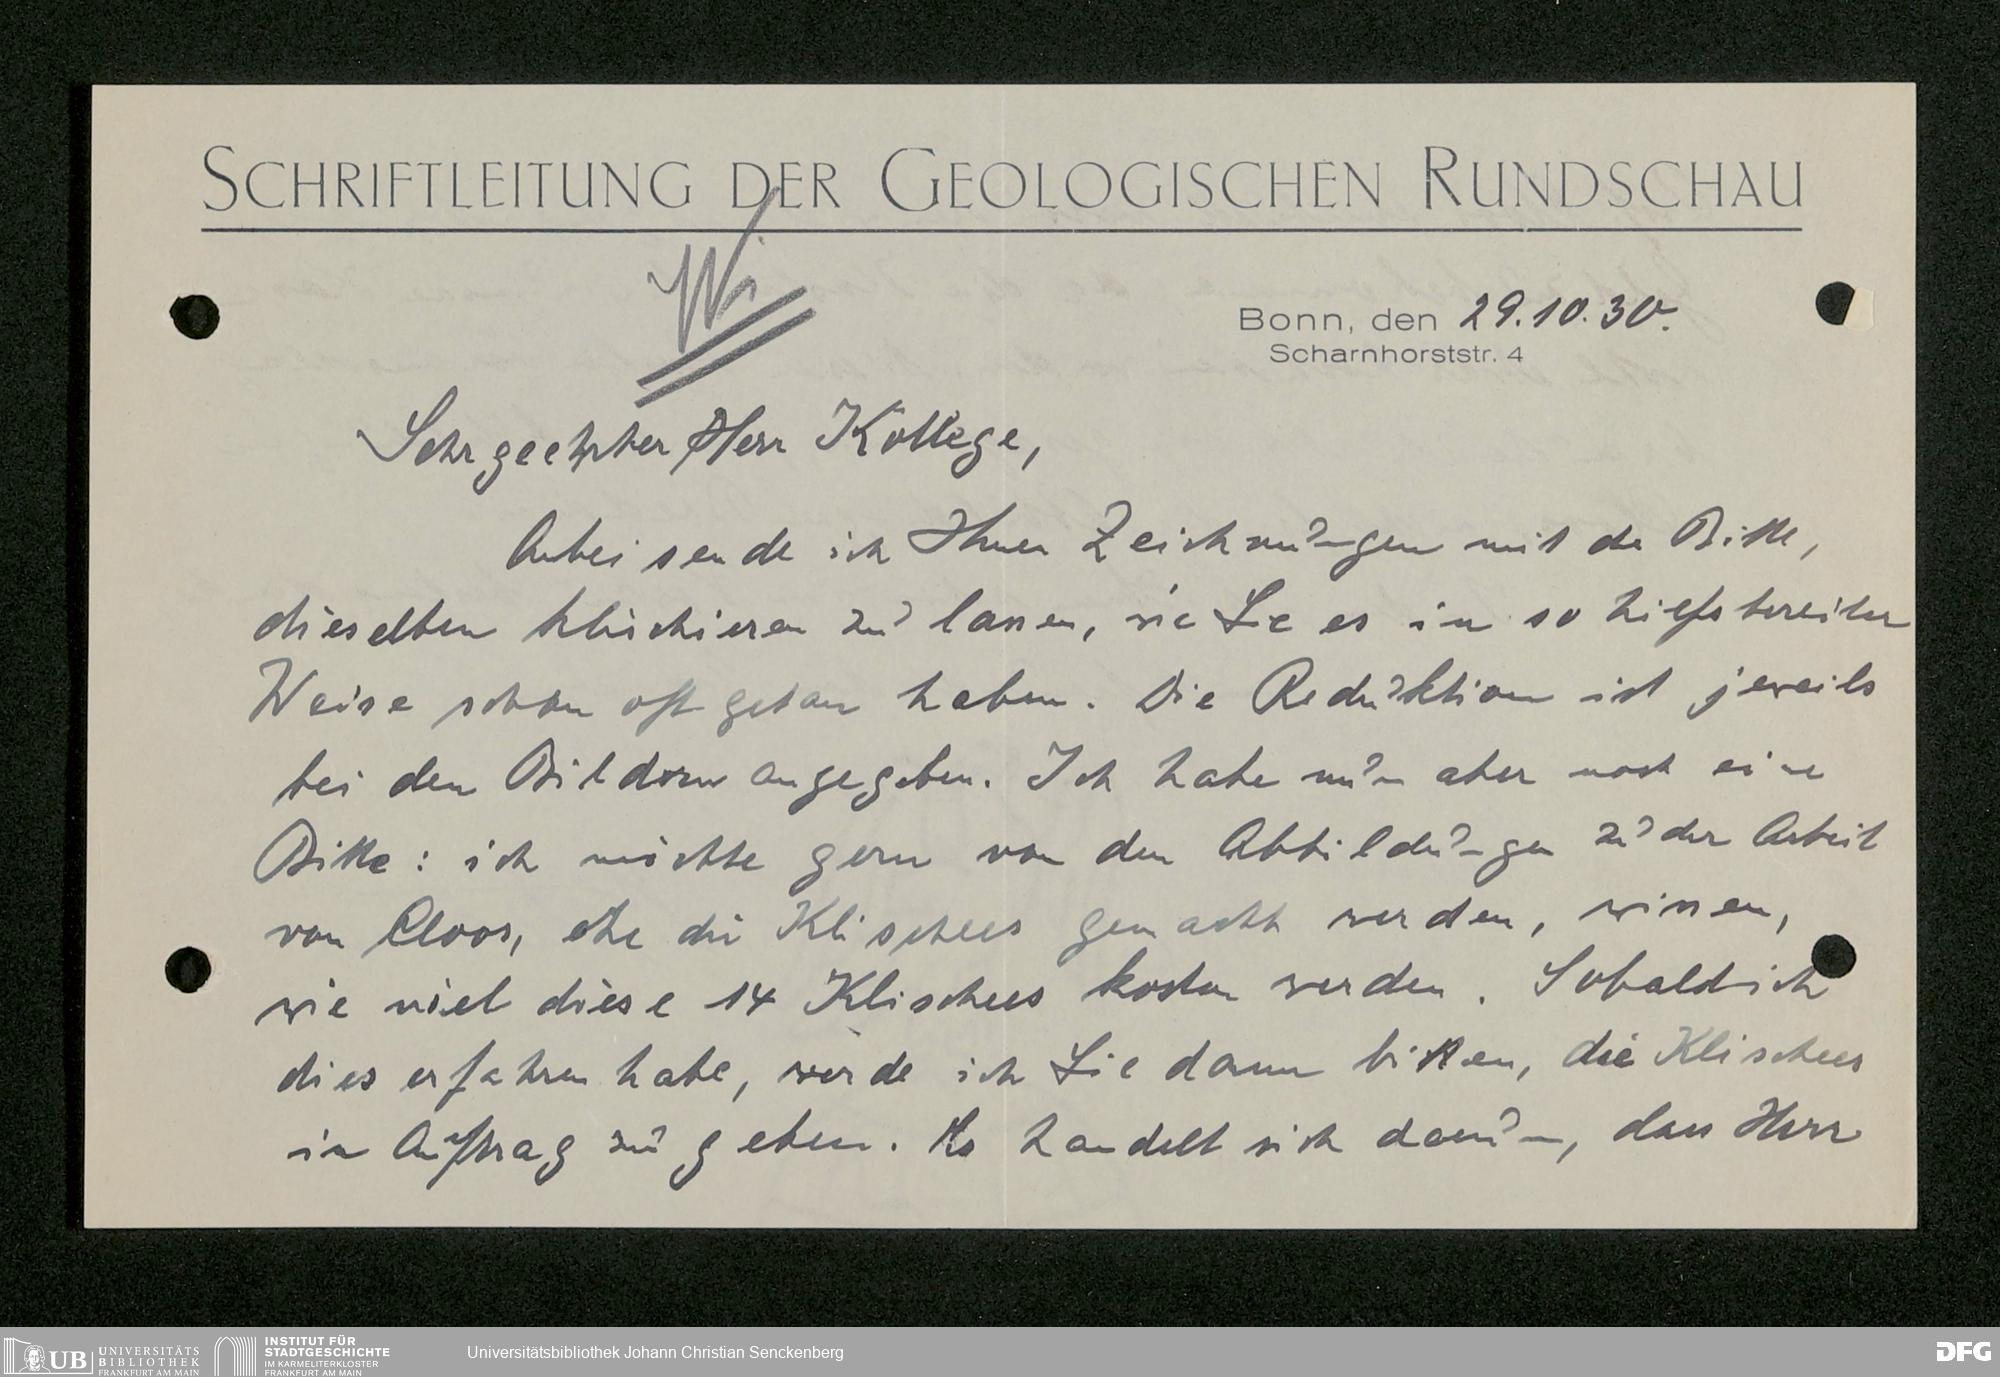 SCHRIFTLEITUNG DER GEOLOGISCHEN RUNDSCHAU
Wi
Bonn, den 29.10.30.
Scharnhorststr. 4
Sehr geehrter Herr Kollege,
Anbei sende ich Ihnen Zeichnungen mit der Bitte,
dieselben klischieren zu lassen, wie Sie es in so hilfsbereiter
Weise schon oft getan haben. Die Reduktion ist jeweils
bei den Bildern angegeben. Ich habe nun aber noch eine
Bitte: ich möchte gern von den Abbildungen zu der Arbeit
von Cloos, ehe die Klischees gemacht werden, wissen,
wie viel diese 14 Klischees kosten werden. Sobald ich
dies erfahren habe, werde ich Sie dann bitten, die Klischees
in Auftrag zu geben. Es handelt sich darum, dass Herr
UB UNIVERSITÄTS
BIBLIOTHEK
FRANKFURT AM MAIN
INSTITUT FÜR
STADTGESCHICHTE
IM KARMELITERKLOSTER
FRANKFURT AM MAIN
Universitätsbibliothek Johann Christian Senckenberg
DFG